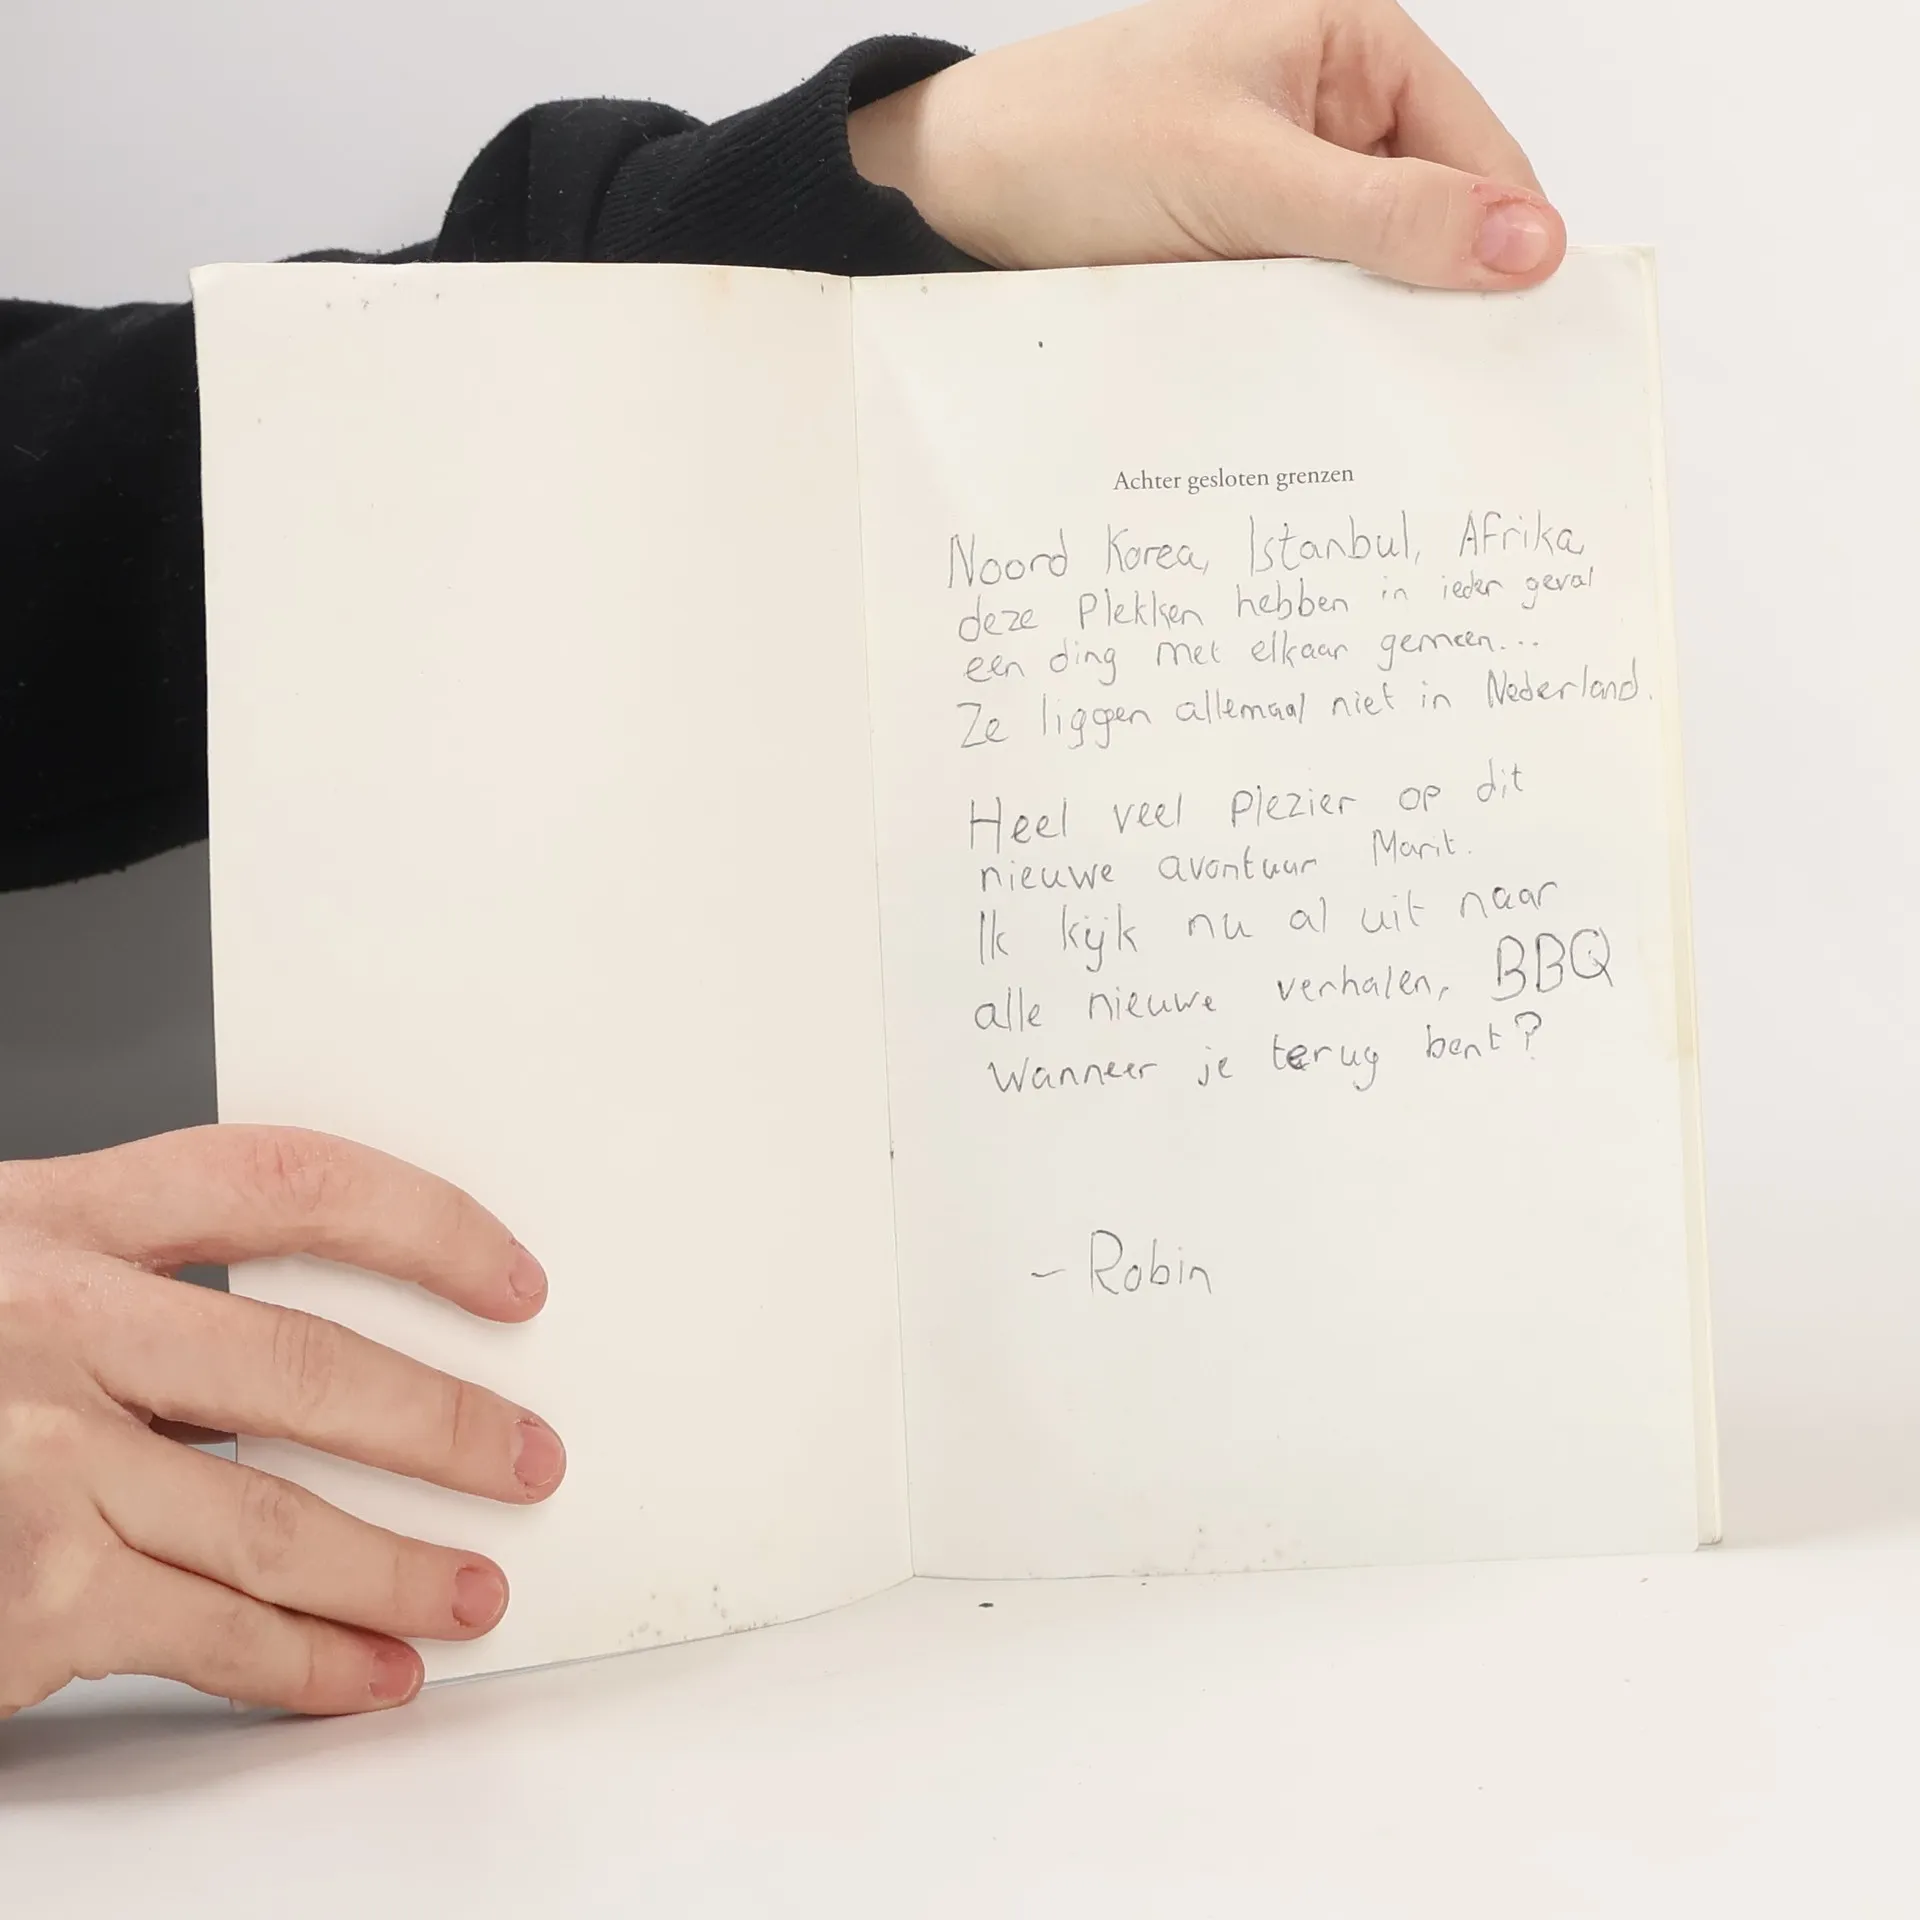 Achter gesloten grenzen
Noord Korea, Istanbul, Afrika,
deze Plekken hebben in ieder geval
een ding met elkaar gemeen...
Ze liggen allemaal niet in Nederland.
Heel veel Plezier op dit
nieuwe avontuur Marit.
Ik kijk nu al uit naar
alle nieuwe verhalen, BBQ
Wanneer je terug bent?
- Robin